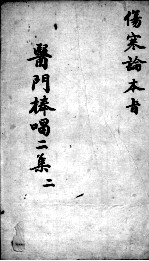 傷寒論本旨
醫門棒喝二集
二